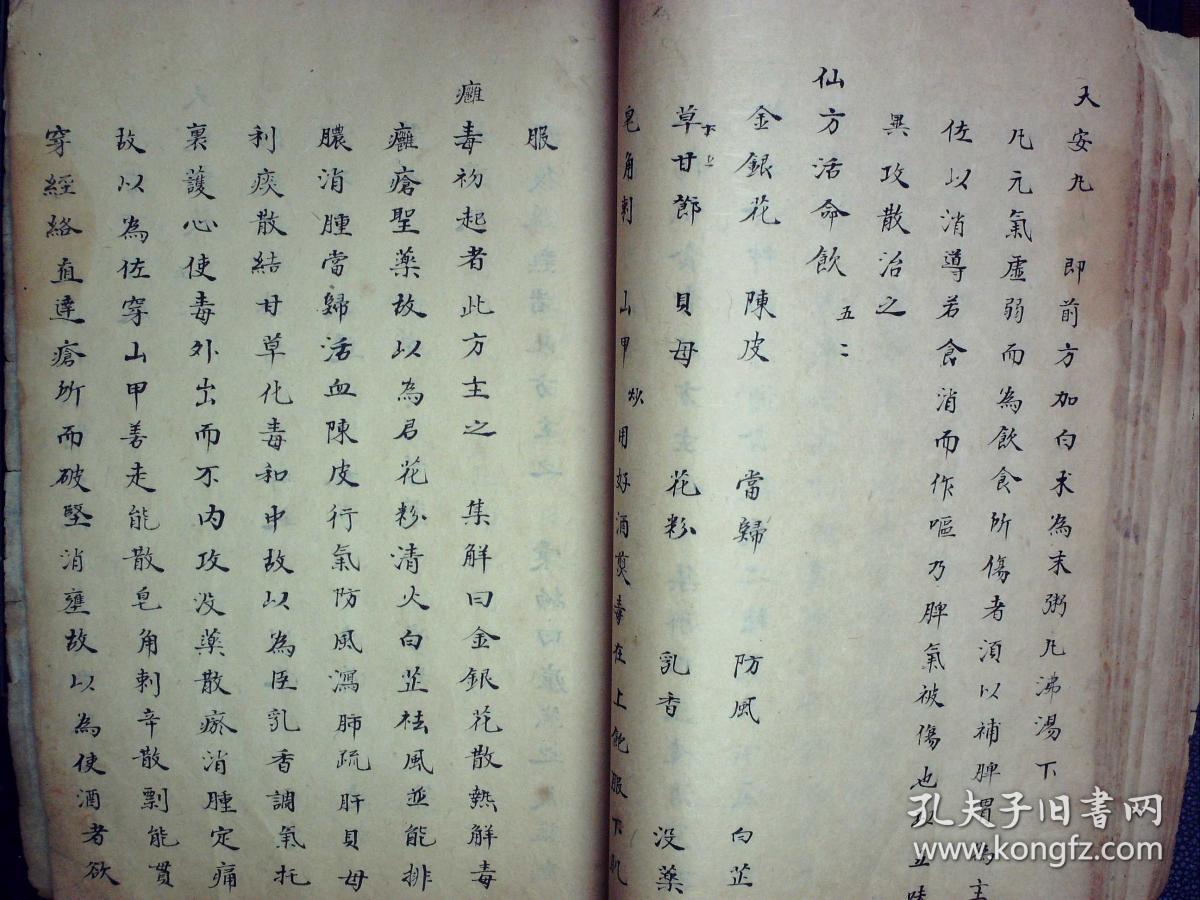 大安丸 即前方加白朮為末粥丸沸湯下
凡元氣虛弱而為飲食所傷者須以補脾胃為主
佐以消導若食消而作嘔乃脾氣被傷也以五味
異攻散治之
仙方活命飲 五二
金銀花 陳皮 當歸 防風 白芷
草甘節 下上 貝母 花粉 乳香 没薬
皂角刺 山甲炒 用好酒煎毒在上飽服下飢
服
癰毒初起者此方主之 集解曰金銀花散熱解毒
癰瘡聖薬故以為君花粉清火白芷祛風並能排
膿消腫當歸活血陳皮行氣防風瀉肺疏肝貝母
利痰散結甘草化毒和中故以為臣乳香調氣托
裏護心使毒外出而不内攻没薬散瘀消腫定痛
故以為佐穿山甲善走能散皂角刺辛散剽能貫
穿經絡直達瘡所而破堅消壅故以為使酒者欲
孔夫子旧書网
www.kongfz.com